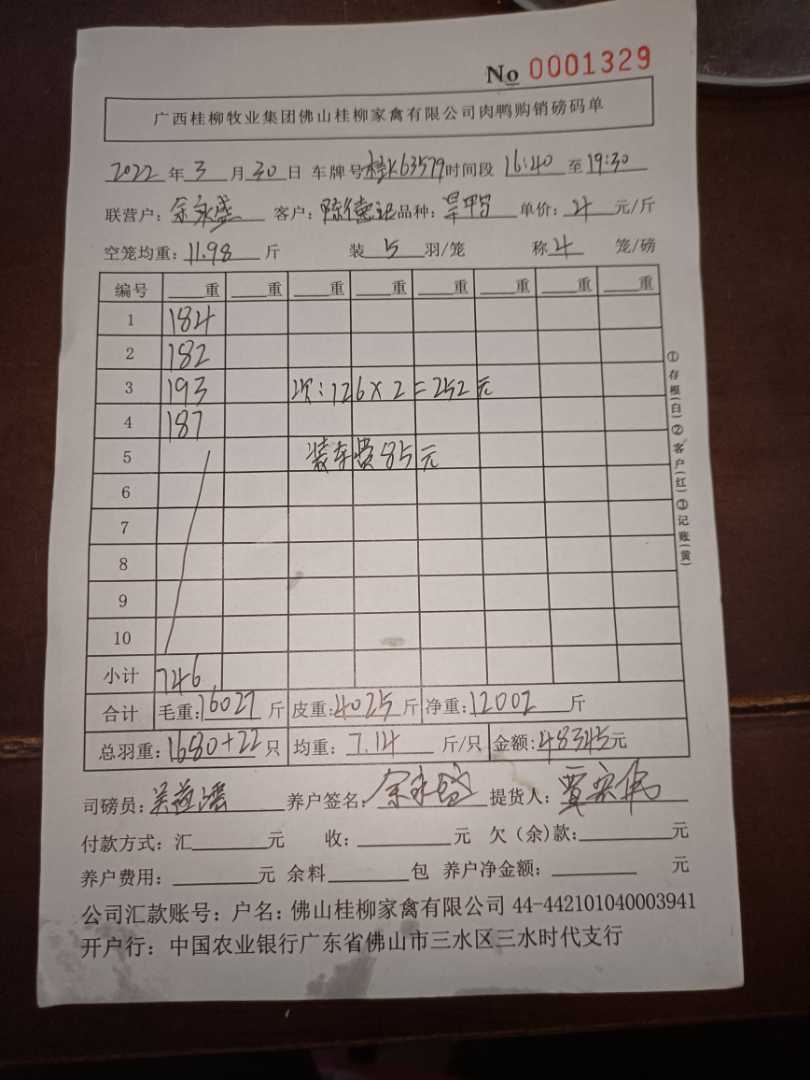 No 0001329
广西桂柳牧业集团佛山桂柳家禽有限公司肉鸭购销磅码单
2022年3月30日 车牌号桂K63579时间段16:40至19:30
联营户：余永盛 客户：陈德记 品种：旱鸭 单价：4元/斤
空笼均重：11.98斤 装5羽/笼 称4笼/磅
编号 重 重 重 重 重 重 重 重
1 184
2 182
3 193 次：126×2=252元
4 187
5 装车费85元
6
7
8
9
10
小计 746
合计 毛重：16027斤 皮重：4025斤 净重：12002斤
总羽重：1680+22只 均重：7.14斤/只 金额：48345元
司磅员： 养户签名：余永盛 提货人：
付款方式：汇 元 收： 元 欠（余）款： 元
养户费用： 元 余料 包 养户净金额： 元
公司汇款账号：户名：佛山桂柳家禽有限公司 44-442101040003941
开户行：中国农业银行广东省佛山市三水区三水时代支行
①存根(白)②客户(红)③记账(黄)